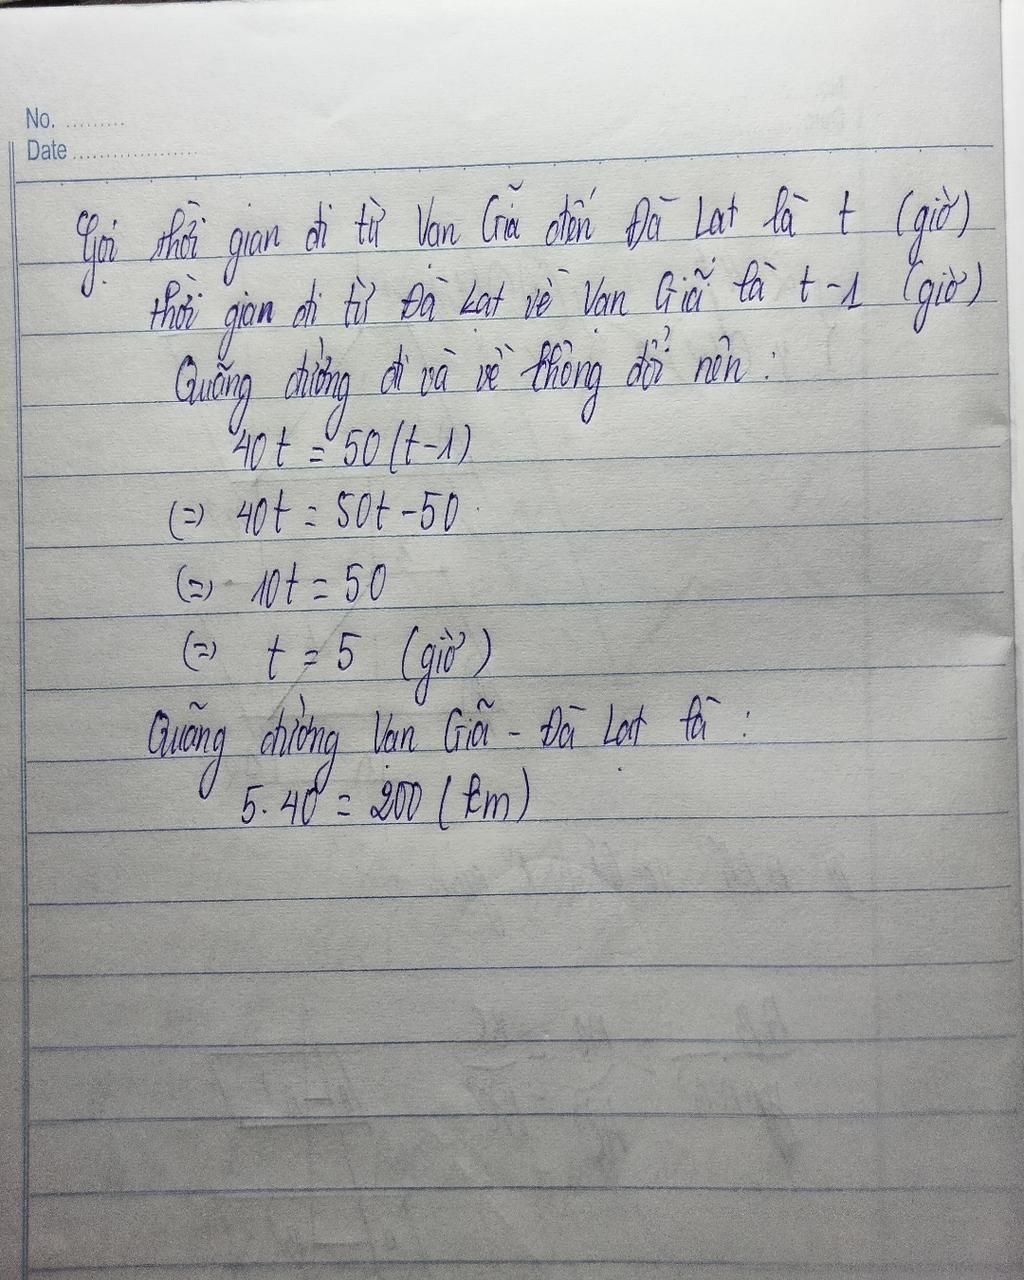 No. .........
Date ...................
Gọi thời gian đi từ Vạn Giã đến Đà Lạt là t (giờ)
thời gian đi từ Đà Lạt về Vạn Giã là t-1 (giờ)
Quãng đường đi và về không đổi nên :
40t = 50(t-1)
(=) 40t = 50t-50
(=) 10t = 50
(=) t = 5 (giờ)
Quãng đường Vạn Giã - Đà Lạt là :
5.40 = 200 (km)